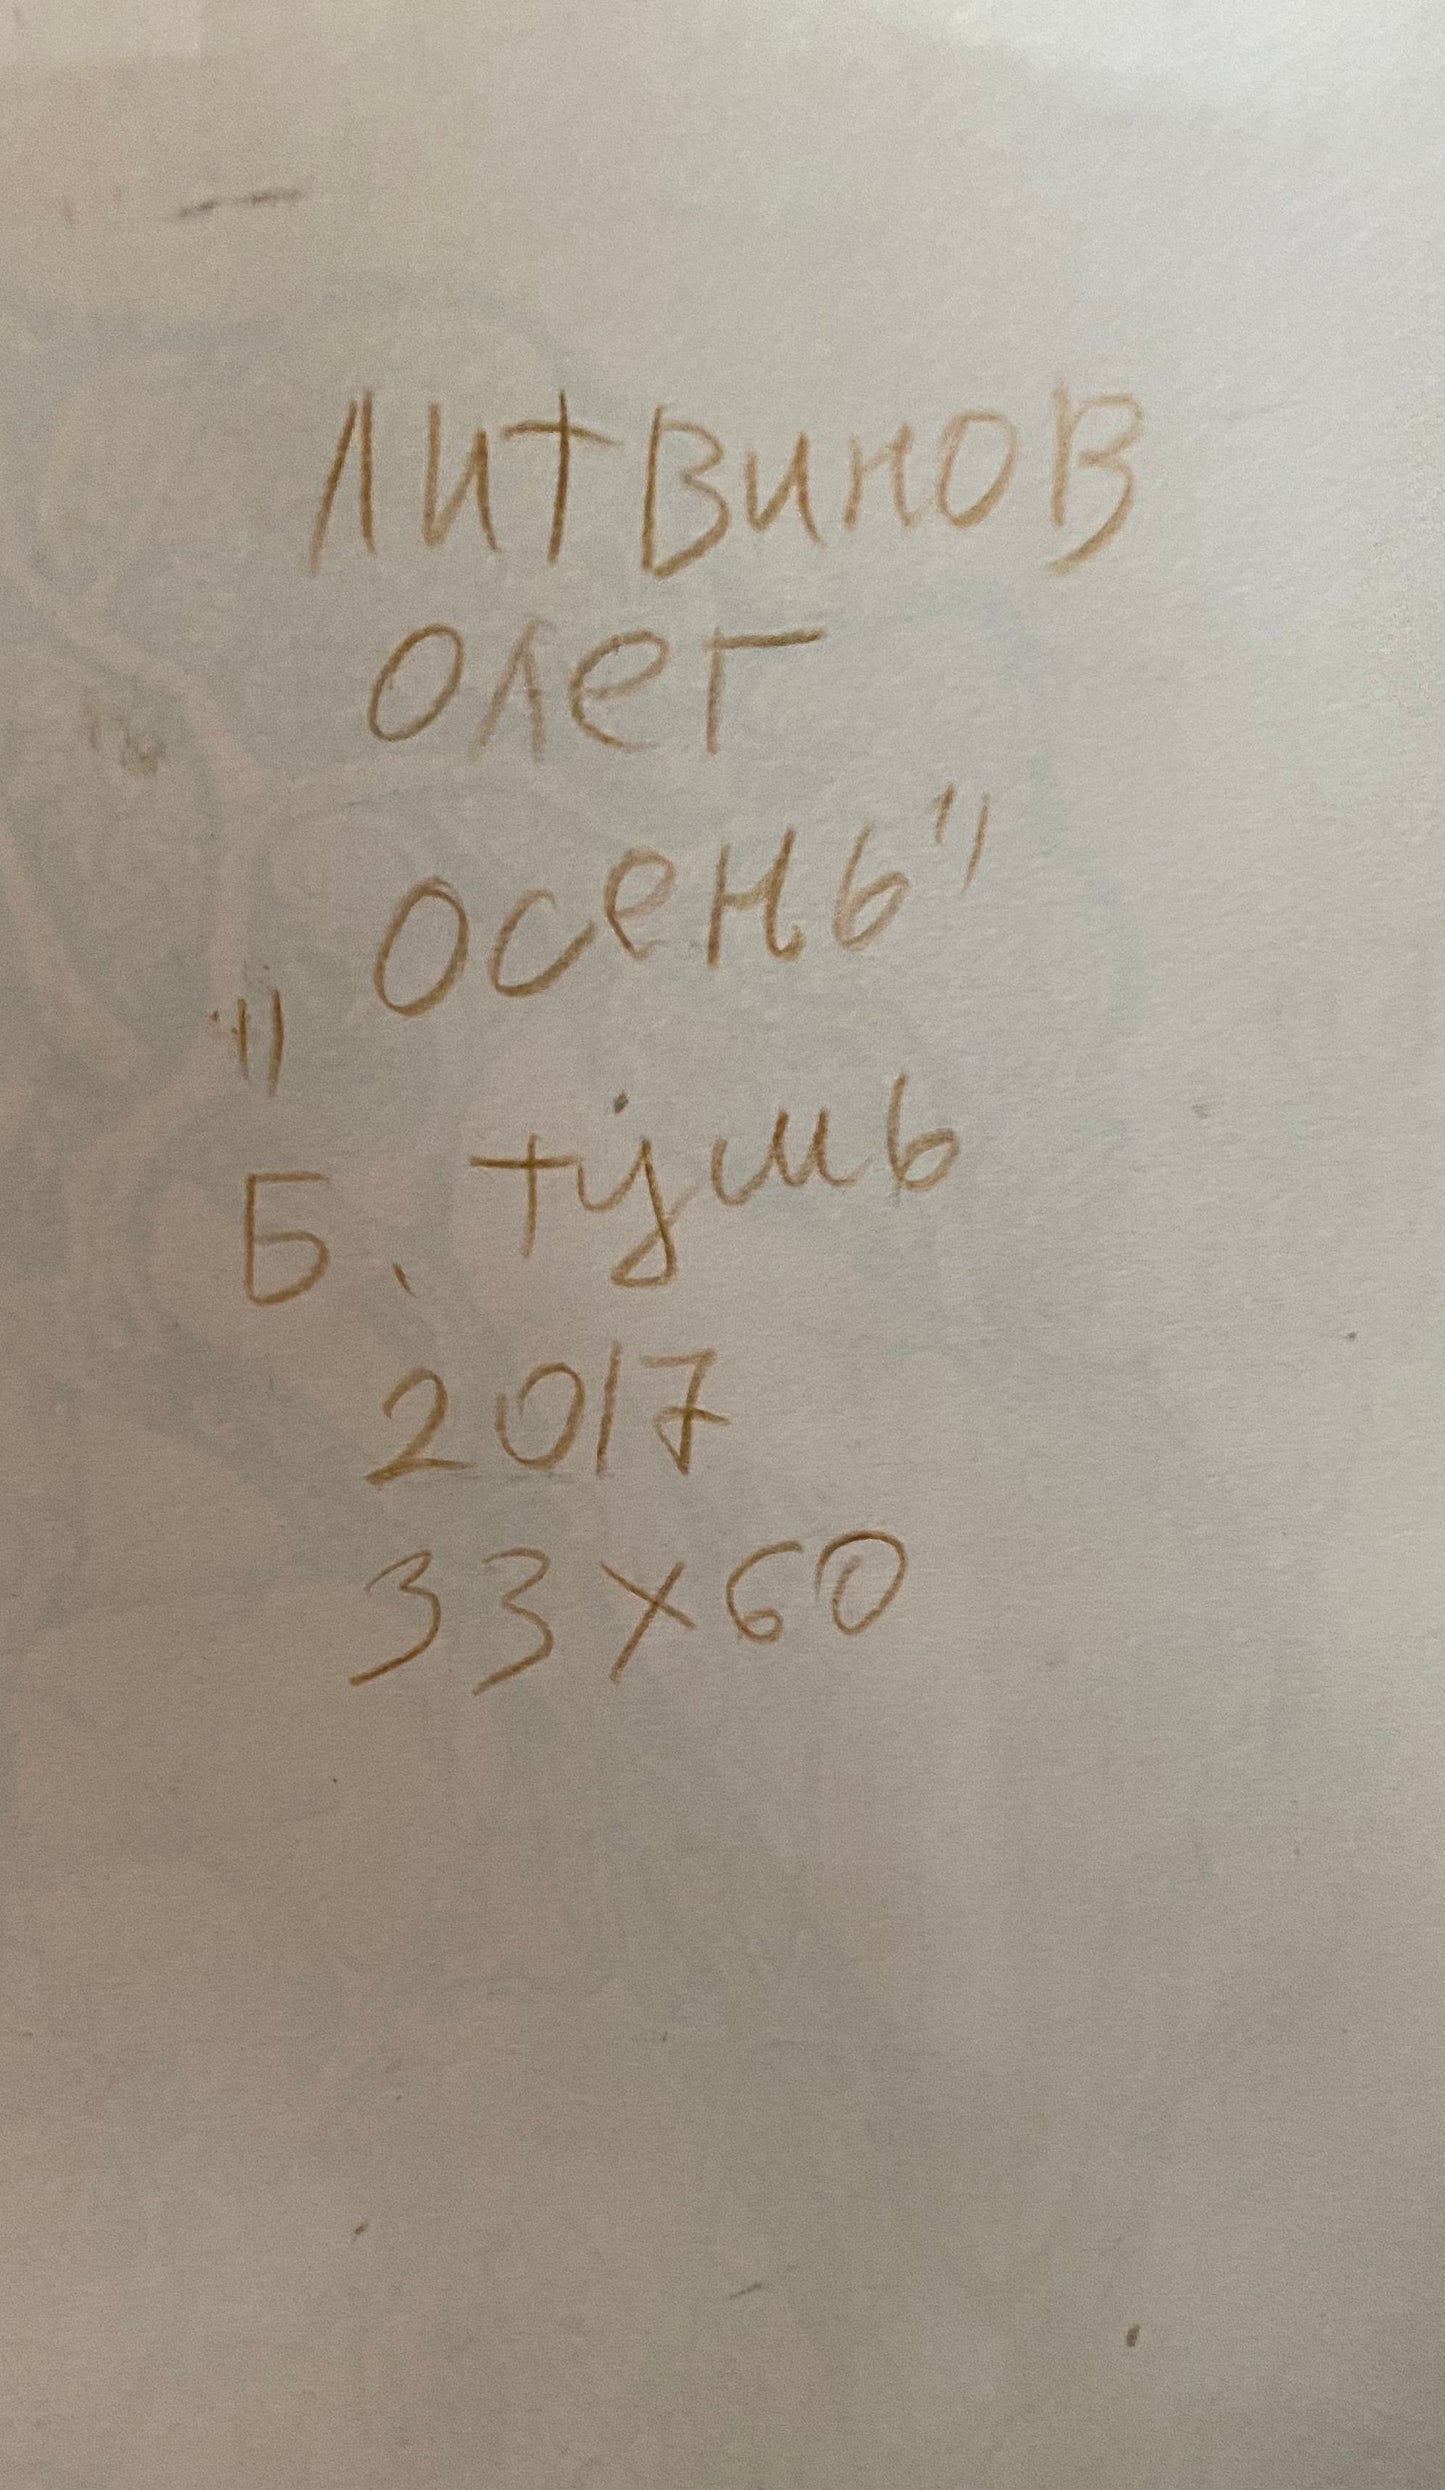 Литвинов
Олег
"Осень"
Б. тушь
2017
33х60